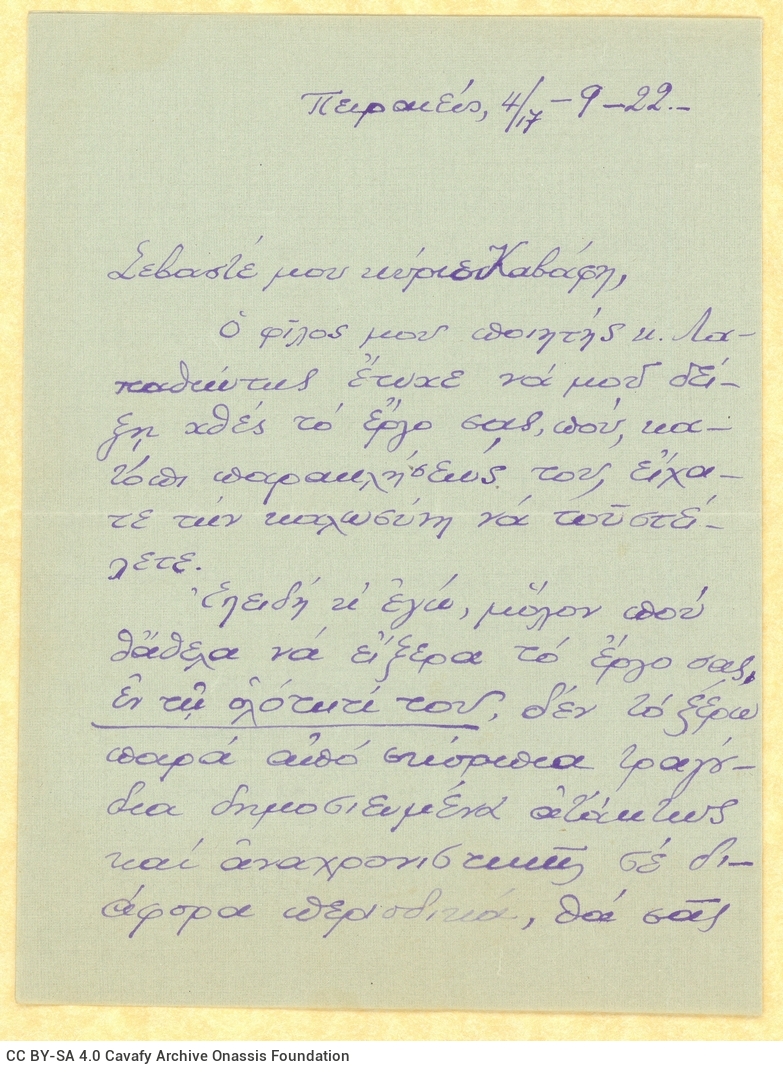 Πειραιεύς, 4/17-9-22.-
Σεβαστέ μου κύριε Καβάφη,
Ὁ φίλος μου ποιητής κ. Λα-
παθιώτης ἔτυχε νά μοῦ δεί-
ξῃ χθές τό ἔργο σας, πού, κα-
τόπι παρακλήσεώς του, εἴχα-
τε τήν καλωσύνη νά τοῦ στεί-
λετε.
Ἐπειδή κι ἐγώ, μόλον πού
θἄθελα νά εἴξερα τό ἔργο σας,
ἐν τῇ ὁλότητί του, δέν τό ξέρω
παρά ἀπό σκόρπια τραγού-
δια δημοσιευμένα ἀτάκτως
καί ἀναχρονιστικῶς σέ δι-
άφορα περιοδικά, θά σᾶς
CC BY-SA 4.0 Cavafy Archive Onassis Foundation